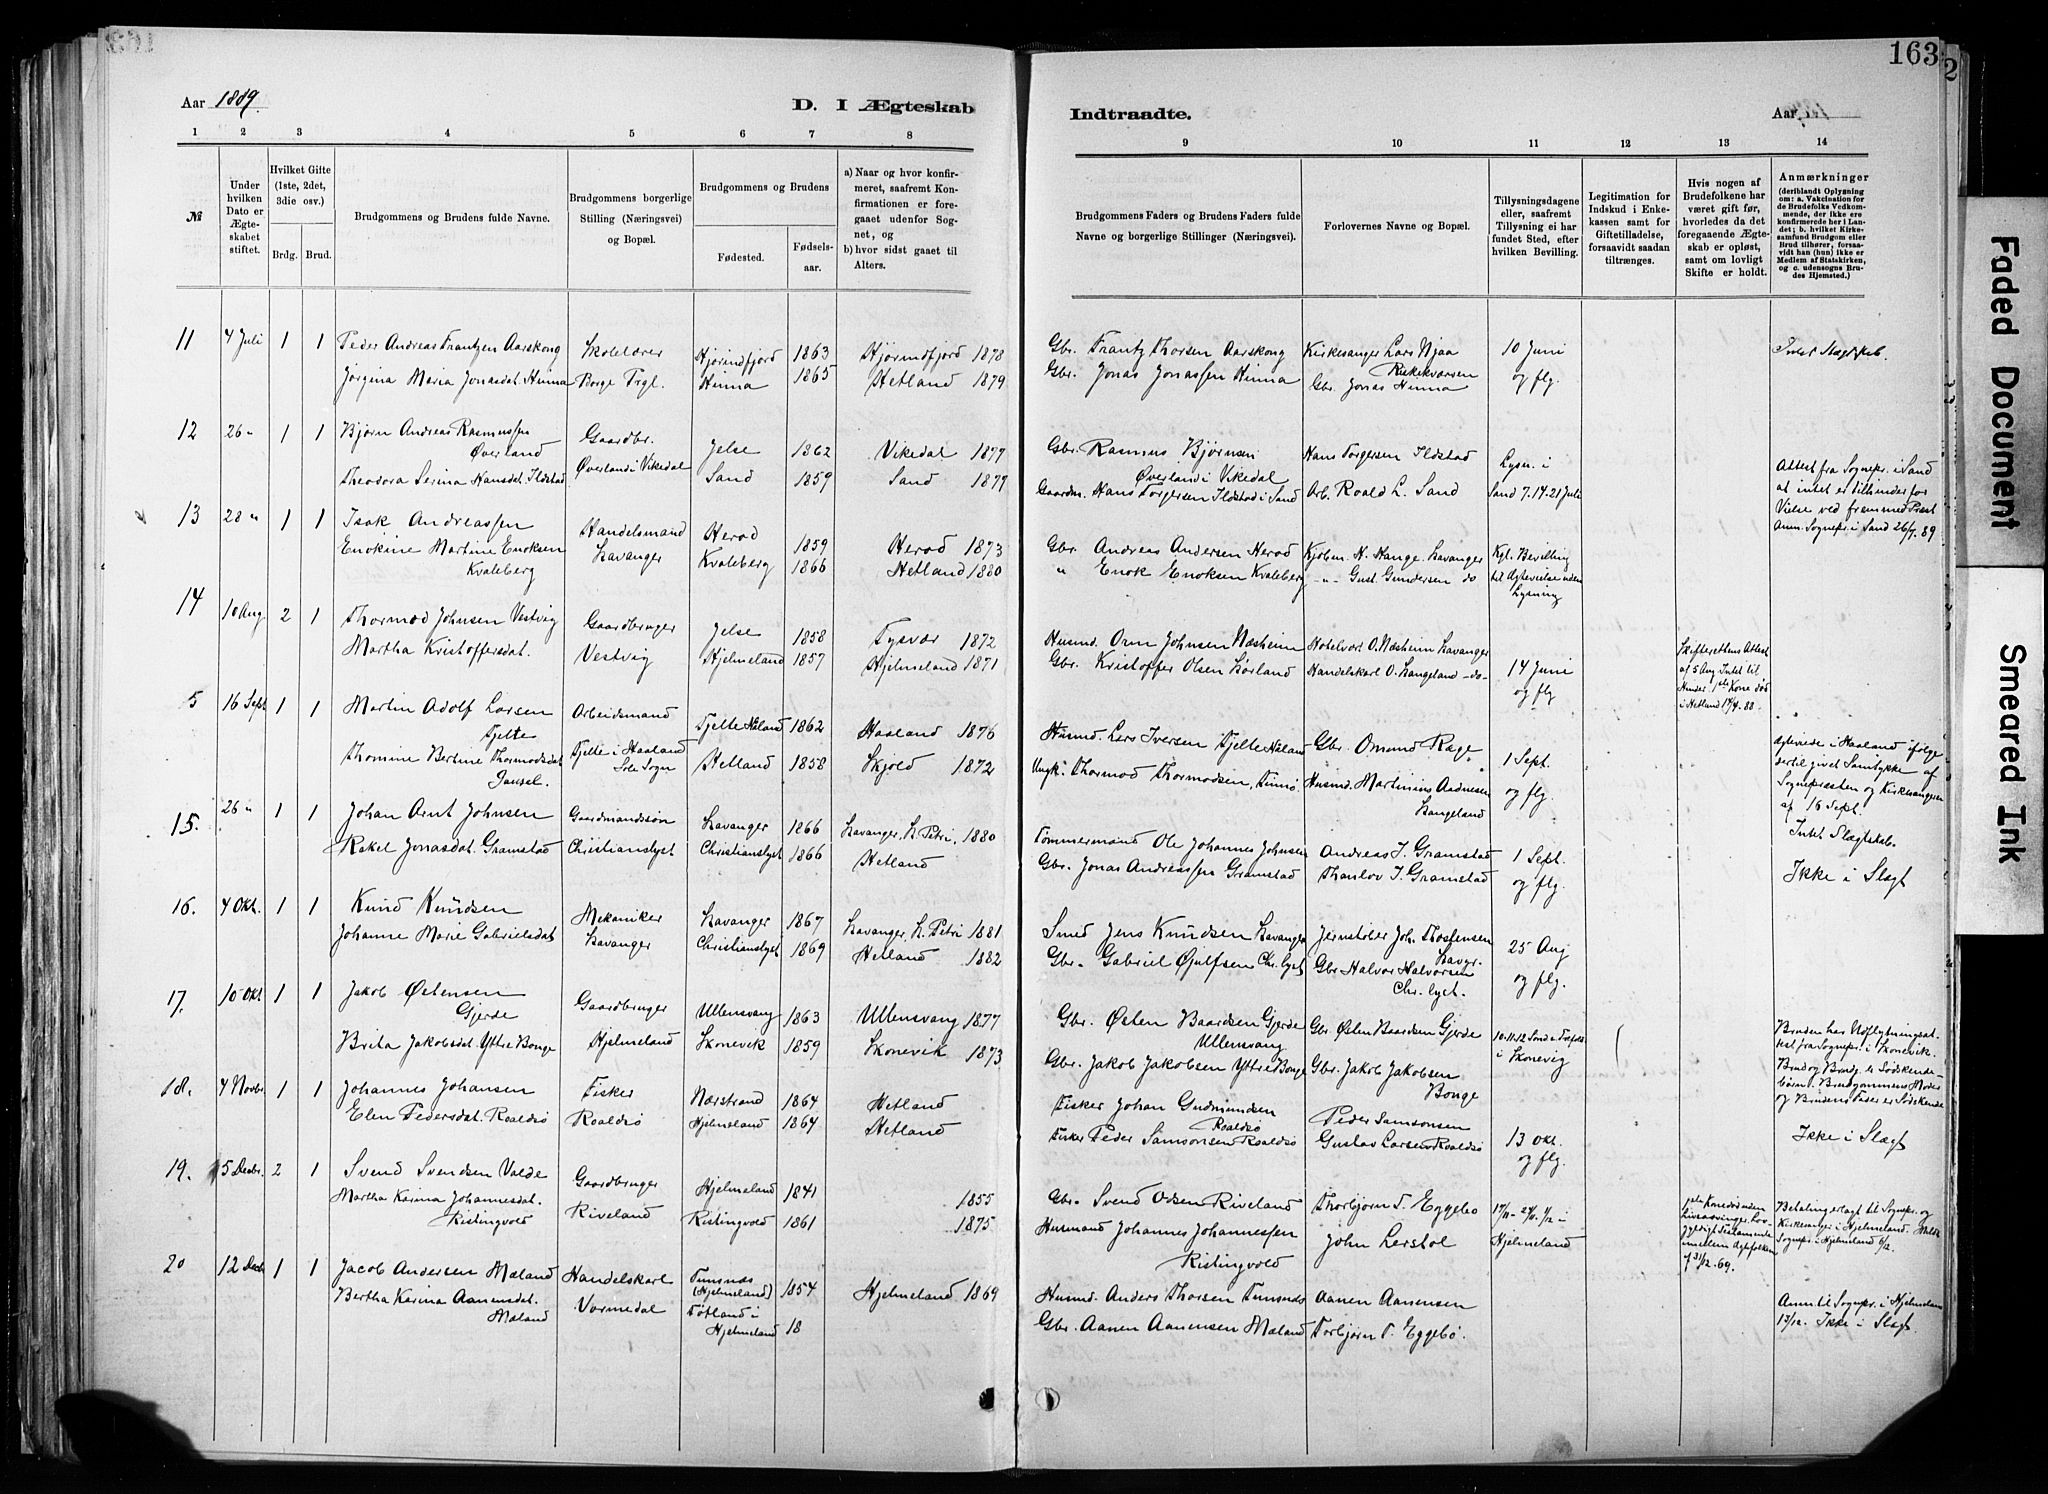 163
Aar 1889.
D. I Ægteskab
Indtraadte.
Aar
1 2 3 4 5 6 7 8
9 10 11 12 13 14
№
Under hvilken Dato er Ægteskabet stiftet.
Hvilket Gifte (1ste, 2det, 3die osv.)
Brdg. Brud.
Brudgommens og Brudens fulde Navne.
Brudgommens borgerlige Stilling (Næringsvei) og Bopæl.
Brudgommens og Brudens
Fødested.
Fødselsaar.
a) Naar og hvor konfirmeret, saafremt Konfirmationen er foregaaet udenfor Sognet, og
b) hvor sidst gaaet til Alters.
Brudgommens Faders og Brudens Faders fulde Navne og borgerlige Stillinger (Næringsvei).
Forlovernes Navne og Bopæl.
Tillysningsdagene eller, saafremt Tillysning ei har fundet Sted, efter hvilken Bevilling.
Legitimation for Indskud i Enkekassen samt for Giftetilladelse, forsaavidt saadan tiltrænges.
Hvis nogen af Brudefolkene har været gift før, hvorledes da det foregaaende Ægteskab er opløst, samt om lovligt Skifte er holdt.
Anmærkninger
(deriblandt Oplysning om: a. Vakcination for de Brudefolks Vedkommende, der ikke ere konfirmerede her i Landet; b. hvilket Kirkesamfund Brudgom eller Brud tilhører, forsaavidt han (hun) ikke er Medlem af Statskirken, og c. udensogns Brudes Hjemsted.)
11 4 Juli 1 1 Peder Andreas Frantzen Aarskong Skolelærer Hjörindfjord 1863 Hjörindfjord 1878 Gbr. Frantz Thorsen Aarskong Kirkesanger Lars Njaa 10 Juni Intet Slægtskab.
Jørgina Maria Jonasdat. Hinna Borge Prgl. Hinna 1865 Hetland 1879 Gbr. Jonas Jonassen Hinna Riskekvarsen Gbr. Jonas Hinna og flg.
12 26 " 1 1 Bjørn Andreas Rasmussen Øverland Gaardbr. Jelse 1862 Vikedal 1877 Gbr. Rasmus Bjørnsen Øverland i Vikedal Hans Torgersen Ilstad Lysn. i
Theodora Serina Hansdat. Ilstad Øverland i Vikedal Sand 1859 Sand 1879 Gaardm. Hans Torgersen Ilstad i Sand Arb. Roald L. Sand Sand 7. 14. 21 Juli
Attest fra Sognepr. i Sand at intet er tilhinder for Vielse ved fremmed Præst Anm. Sognepr. i Sand 26/7. 89
13 28 " 1 1 Isak Andreassen Handelsmand Herod 1859 Herod 1873 Gbr. Andreas Andersen Herod Kjøbm. H. Hauge Stavanger Kgl. Bevilling
Enokine Martine Enoksen Kvaleberg Stavanger Kvaleberg 1866 Hetland 1880 " Enok Enoksen Kvaleberg " Gust. Gundersen do til Ægtevielse uden Lysning
14 10 Aug 2 1 Thormod Johnsen Vestvig Gaardbruger Jelse 1858 Tysvær 1872 Husmd. Orm Johnsen Næsheim Hotelvært O. Næsheim Stavanger 14 Juni
Martha Kristoffersdat. Vestvig Hjelmeland 1857 Hjelmeland 1871 Gbr. Kristoffer Olsen Lørland Handelskarl O. Langeland -do- og flg
Skifterettens Attest af 5 Aug. Intet til Hinder. 1ste Kone død i Hetland 17/4. 88.
5 16 Sept 1 1 Martin Adolf Larsen Tjelte Arbeidsmand Tjelte Haaland 1862 Haaland 1876 Husmd. Lars Iversen Tjelte Haaland Gbr. Omund Rage 1 Sept.
Thomine Bertine Thormodsdat. Tjelte i Haaland Sole Sogn Hetland 1858 Skjold 1872 Ungk. Thormod Thormodsen, Finnø. Husmd. Martinius Aadnesen Langeland og flg.
Ægteviede i Haaland ifølge dertil givet Samtykke af Sognepræsten og Kirkesangeren af 16 Sept. Intet Slægtskab.
15. 26 " 1 1 Johan Arnt Johnsen Gaardmandssøn Stavanger 1866 Stavanger, St. Petri, 1880 Tømmermand Ole Johannes Johnsen Andreas J. Gramstad 1 Sept.
Rakel Jonasdat. Gramstad Christianslyst Christianslyst 1866 Hetland Gbr. Jonas Andreassen Gramstad Thanlov J. Gramstad og flg. Ikke i Slægt
16. 4 Okt. 1 1 Knud Knudsen Mekaniker Stavanger 1867 Stavanger, St. Petri 1881 Smed Jens Knudsen Stavanger Jernstøber Joh. Thostensen Stavgr. 25 Aug
Johanne Marie Gabrielsdat Stavanger Christianslyst 1869 Hetland 1882 Gbr. Gabriel Øjulfsen Chr. lyst Gbr. Halvor Halvorsen Chr. lyst. og flg.
17. 10 Okt 1 1 Jakob Østensen Gjerde Gaardbruger Ullensvang 1863 Ullensvang 1877 Gbr. Østen Baardsen Gjerde Ullensvang Gbr. Østen Baardsen Gjerde 10. 11. 12 Sønd. e. Trefold.
Brita Jakobsdat. Yttre Bonge Hjelmeland Skonevik 1859 Skonevik 1873 Gbr. Jakob Jakobsen Yttre Bonge Gbr. Jakob Jakobsen Bonge i Skonevig
Bruden har Udflytningsattest fra Sognepr. i Skonevik. Brud og Brudg. er Sødskendebørn. Brudgommens Moder og Brudens Fader er Sødskende
18. 4 Novbr 1 1 Johannes Johansen Fisker Nærstrand 1864 Hetland Fisker Johan Gudmundsen Roaldsø Peder Samsonsen 13 Okt.
Elen Pedersdat. Roaldsø Roaldsø Hjelmeland 1864 Hetland Fisker Peder Samsonsen Roaldsø Gustav Larsen Roaldsø og flg. Ikke i Slægt
19. 5 Decbr. 2 1 Svend Svendsen Valde Gaardbruger Hjelmeland 1841 1855 Gbr. Svend Odsen Riveland Thorbjørn T. Eggebø 17/11 - 24/11. 1/12 - i
Martha Karina Johannesdat. Ristingvold Riveland Ristingvold 1861 1875 Husmand Johannes Johannessen Ristingvold John Lerstøl Hjelmeland
Betaling erlagt til Sognepr. og Kirkesanger i Hjelmeland. Sognepr. i Hjelmeland 6/12.
20 12 Decbr 1 1 Jacob Andersen Mæland Handelskarl Tumsnæs (Hjelmeland) 1854 Hjelmeland 1869 Husmd. Anders Thorsen Tumsnes Aanen Aanensen
Bertha Karina Aanensdat. Mæland Vormedal Tøtland i Hjelmeland 18 Gbr. Aanen Aanensen Mæland Torbjørn T. Eggebø.
Anm. til Sognepr. i Hjelmeland 13/12. Ikke i Slægt.
Faded Document
Smeared Ink